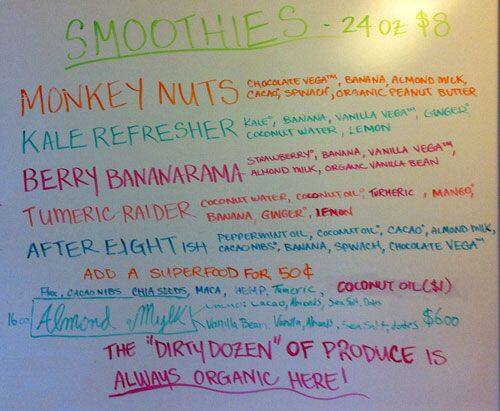 SMOOTHIES - 24 OZ $8
MONKEY NUTS CHOCOLATE VEGA™, BANANA, ALMOND MILK,
CACAO°, SPINACH°, ORGANIC PEANUT BUTTER
KALE REFRESHER KALE°, BANANA, VANILLA VEGA™, GINGER°
COCONUT WATER, LEMON
BERRY BANANARAMA STRAWBERRY°, BANANA, VANILLA VEGA™,
ALMOND MILK, ORGANIC VANILLA BEAN
TUMERIC-RAIDER COCONUT WATER, COCONUT OIL°, TURMERIC, MANGO°,
BANANA, GINGER°, LEMON
AFTER EIGHTISH PEPPERMINT OIL, COCONUT OIL°, CACAO°, ALMOND MILK,
CACAO NIBS°, BANANA, SPINACH, CHOCOLATE VEGA™
ADD A SUPERFOOD FOR 50¢
Flax, CACAO NIBS, CHIA SEEDS, MACA, HEMP, Tumeric, COCONUT OIL ($1)
16oz Almond Mylk Cacao, Almonds, Sea Salt, Dates
Vanilla Bean: Vanilla, Almonds, Sea Salt, dates $6.00
THE "DIRTY DOZEN" OF PRODUCE IS
ALWAYS ORGANIC HERE!